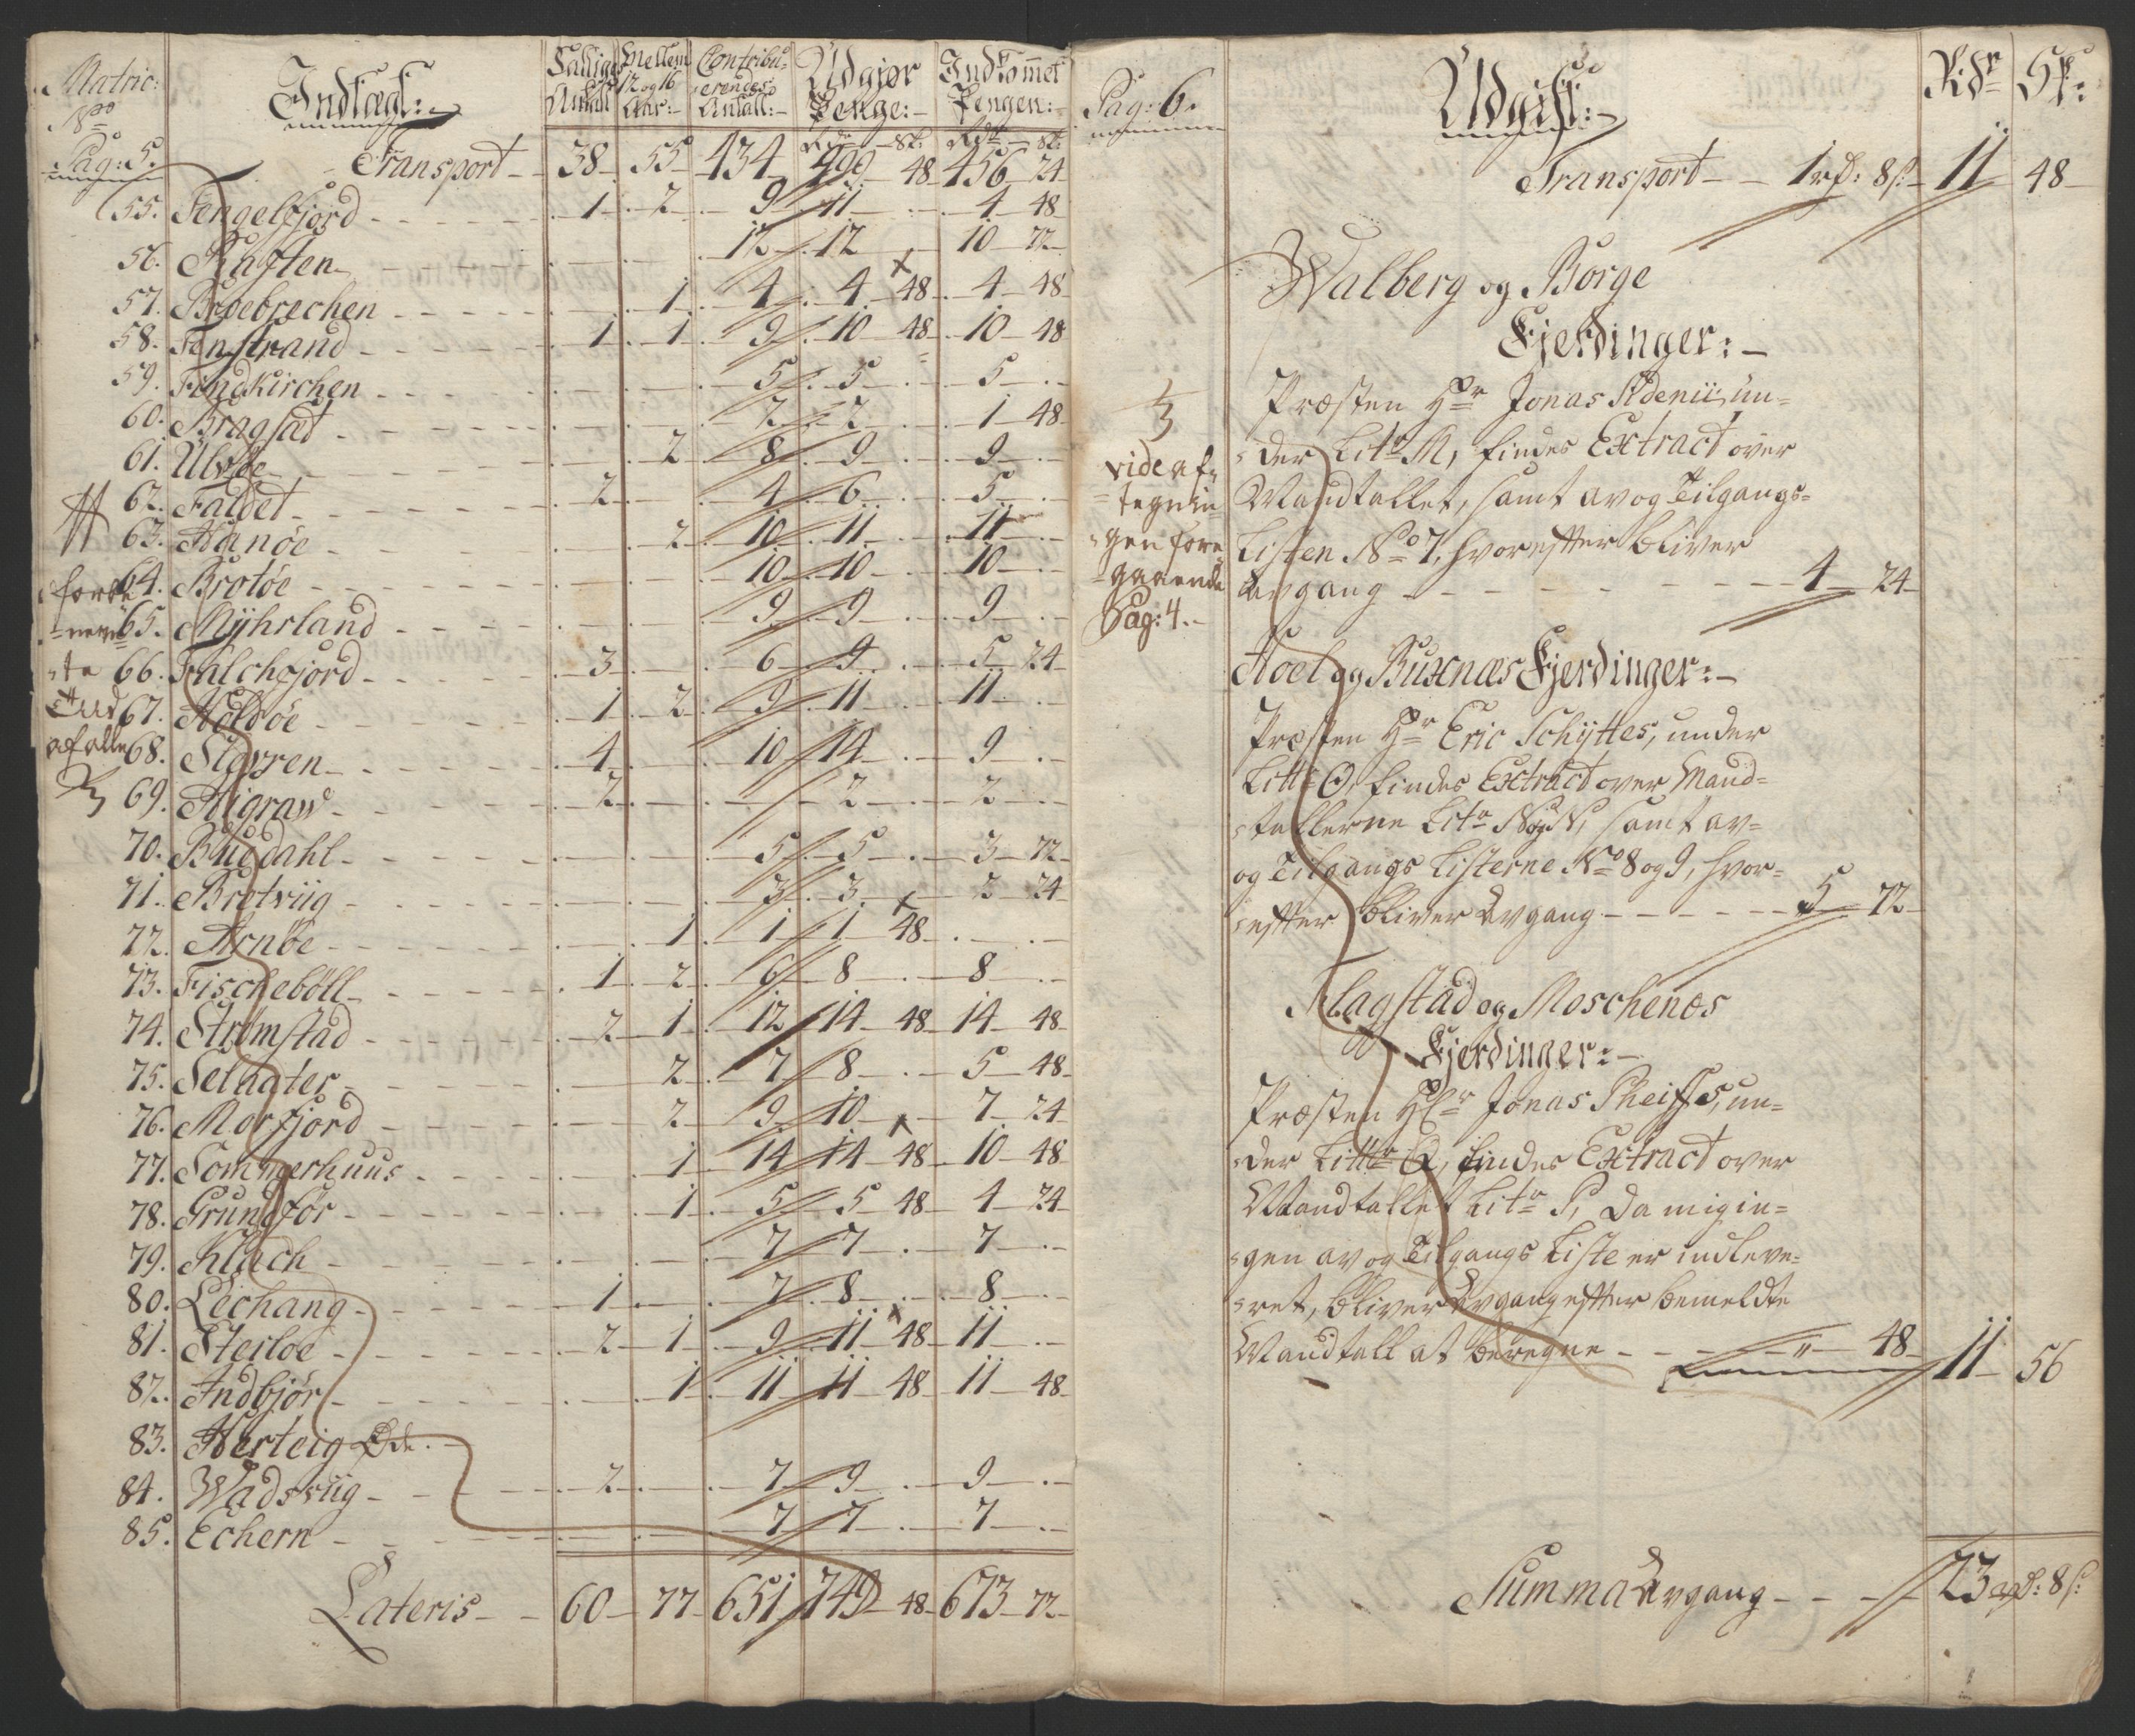 Matric: No Indtægt:- Fattiges Antall Mellem 12 og 16 Aar:- Contribuerendes Antall:- Udgiør Penge:- Indkommet Pengene:-
Pag: 5. Rdr Sk: Rdr Sk:
Transport 38 55 434 499 48 456 24
55. Tengelfjord 1 2 9 11 4 48
56. Raften 12 12 10 72
57. Broebrechen 1 4 4 48 4 48
58. Finstrand 1 1 9 10 48 10 48
59. Findkirchen 5 5 5
60. Bragstad 2 2 1 48
61. Ulvøe 2 8 9 9
62. Faldet 2 4 6 5
63. Hanöe 2 10 11 11
64. Brotöe 10 10 10
65. Nyhrland 9 9 9
66. Falchfjord 3 6 9 5 24
67. Holdöe 1 2 9 11 11
68. Størren 4 10 14 9
69. Higraw 2 2 2
70. Budddahl 5 5 3 72
71. Brotviig 3 3 2 24
72. Arnöe 1 1 1 48
73. Fischeböll 1 2 6 8 8
74. Strømstad 2 1 12 14 48 14 48
75. Selnater 2 7 8 5 48
76. Morfjord 2 9 10 7 24
77. Sommerhuus 1 14 14 48 10 48
78. Grundför 1 5 5 48 4 24
79. Klach 7 7 7
80. Lechang 1 7 8 8
81. Sterlöe 2 1 9 11 48 11
82. Indbjör 1 11 11 48 11 48
83. Herteig Øde
84. Wadsviig 2 7 9 9
85. Echern 7 7 7
Lateris 60 77 651 749 48 673 72
Pag: 6. Udgift:- Rdr Sk:
Transport 1 rd: 8 s: 11 48
Walberg og Borge
Fjerdinger:-
Præsten Hr Jonas Ædenii, un-
der Litr M, findes Extract over
Mandtallet, samt av og Tilgangs-
Listen No 7, hvorefter bliver
Avgang 4 24
vide af-
tegnin-
gen fore
gaaende
Pag: 4.
Hoel og Buxnæs Fjerdinger:-
Præsten Hr Eric Schyttes, under
Littr O, findes Extract over Mand-
tallerne Litr N og N, samt av-
og Tilgangs Listerne No 8 og 9, hvor-
efter bliver Avgang 5 72
Flagstad og Moschenæs
Fjerdinger:-
Præsten Hr Jonas Pheiffs, un-
der Littr Q, findes Extract over
Mandtallet Litr P, da mig in-
gen av og Tilgangs Liste er indleve-
ret, bliver Avgang efter bemeldte
Mandtall at beregne " 48 11 56
Summa Avgang 23 rd: 8 s: